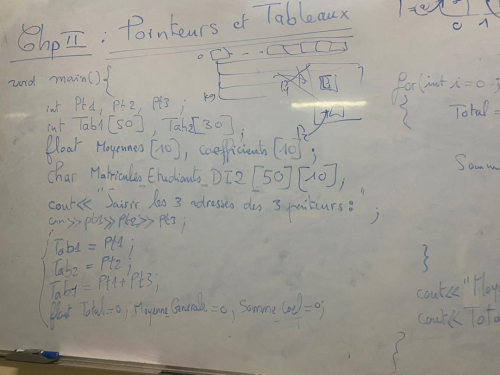 Chp II : Pointeurs et Tableaux
void main(){
int Pt1, Pt2, Pt3 ;
int Tab1[50], Tab2[30];
float Moyennes[10], coefficients[10];
char Matricules_Etudiants_DI2[50][10],
cout<< "Saisir les 3 adresses des 3 pointeurs : " ;
cin>> pt1>>Pt2>> Pt3 ;
Tab1 = Pt1 ;
Tab2 = Pt2 ;
Tab1 = Pt1 + Pt3 ;
float Total=0, Moyenne Generale=0, Somme_Coef=0;
0 1
for(int i=0;
{ Total =
Somm
}
cout<< "Moy
cout<< Tota
}